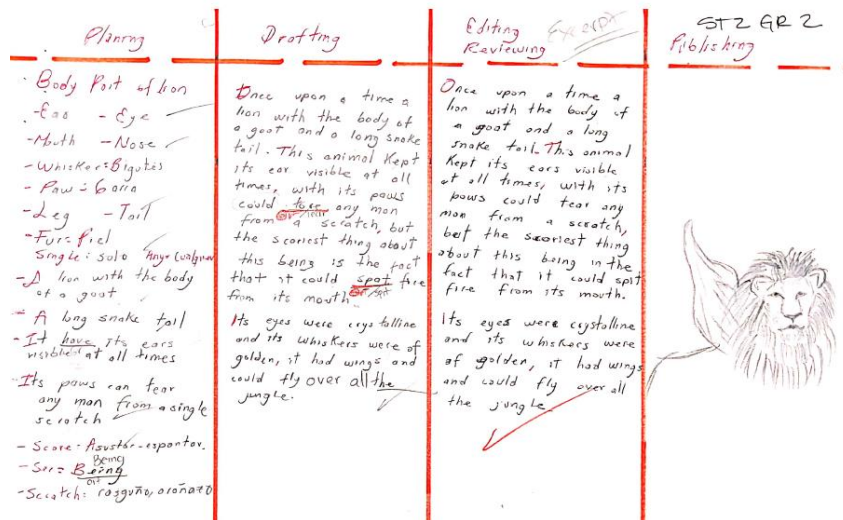 ST2 GR 2
Planing
Body Part of lion
- Ear - Eye
- Mouth - Nose
- Whisker = Bigotes
- Paw = Garra
- Leg - Tail
- Fur = Piel
Single = solo
- A lion with the body
of a goat
- A long snake tail
- It have its ears
visible at all times
- Its paws can tear
any man from a single
scratch
- Scare = Asustar - espantar.
Being
- Ser = Being
- Scratch = rasguño, arañazo
Drafting
Once upon a time a
lion with the body of
a goat and a long snake
tail. This animal Kept
its ear visible at all
times, with its paws
could tare any man
from a scratch, but
the scariest thing about
this being is the fact
that it could spat fire
from its mouth
Its eyes were crystalline
and its whiskers were of
golden, it had wings and
could fly over all the
jungle.
Editing
Reviewing
Excerpt
Once upon a time a
lion with the body of
a goat and a long
snake tail. This animal
Kept its ears visible
at all times, with its
paws could tear any
man from a scratch,
but the scariest thing
about this being in the
fact that it could spit
fire from its mouth.
Its eyes were crystalline
and its whiskers were
of golden, it had wings
and could fly over all
the jungle
Publishing